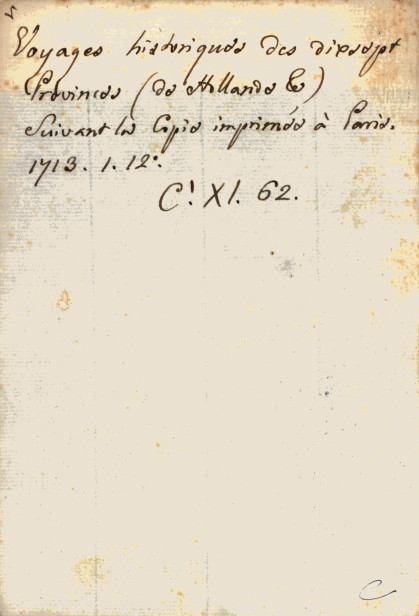 Voyages historiques des dixsept
Provinces (de Hollande &)
Suivant la Copie imprimée à Paris.
1713. 1. 12°.
C! XI. 62.
C